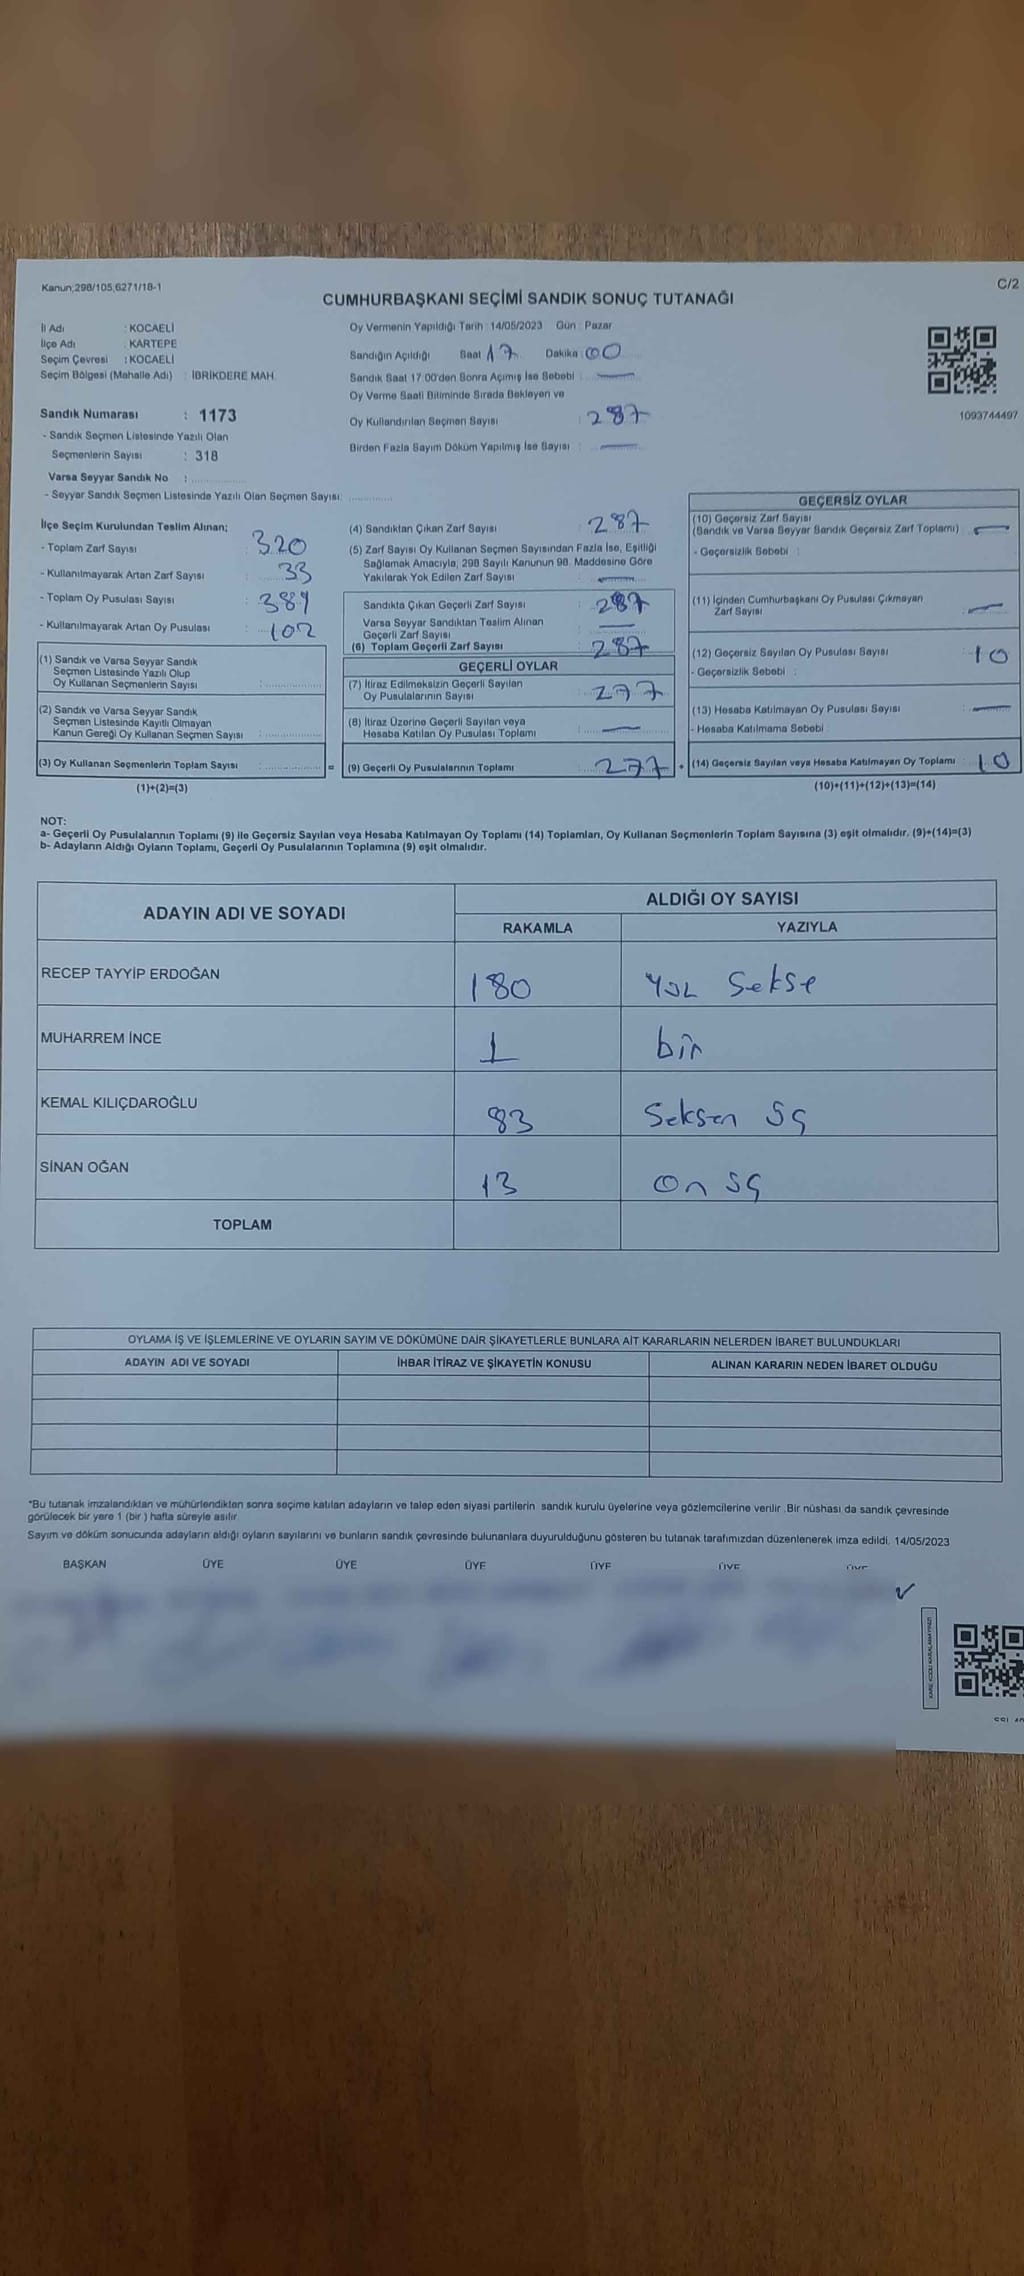 Kanun;298/105,6271/18-1
C/2
CUMHURBAŞKANI SEÇİMİ SANDIK SONUÇ TUTANAĞI
İl Adı : KOCAELİ
İlçe Adı : KARTEPE
Seçim Çevresi : KOCAELİ
Seçim Bölgesi (Mahalle Adı) : İBRİKDERE MAH.
Sandık Numarası : 1173
- Sandık Seçmen Listesinde Yazılı Olan
Seçmenlerin Sayısı : 318
Varsa Seyyar Sandık No :
- Seyyar Sandık Seçmen Listesinde Yazılı Olan Seçmen Sayısı:
Oy Vermenin Yapıldığı Tarih : 14/05/2023 Gün : Pazar
Sandığın Açıldığı Saat 17 Dakika 00
Sandık Saat 17:00'den Sonra Açımış İse Sebebi : —
Oy Verme Saati Bitiminde Sırada Bekleyen ve
Oy Kullandırılan Seçmen Sayısı : 287
Birden Fazla Sayım Döküm Yapılmış İse Sayısı : —
1093744497
İlçe Seçim Kurulundan Teslim Alınan;
- Toplam Zarf Sayısı : 320
- Kullanılmayarak Artan Zarf Sayısı : 33
- Toplam Oy Pusulası Sayısı : 389
- Kullanılmayarak Artan Oy Pusulası : 102
(1) Sandık ve Varsa Seyyar Sandık
Seçmen Listesinde Yazılı Olup
Oy Kullanan Seçmenlerin Sayısı :
(2) Sandık ve Varsa Seyyar Sandık
Seçmen Listesinde Kayıtlı Olmayan
Kanun Gereği Oy Kullanan Seçmen Sayısı :
(3) Oy Kullanan Seçmenlerin Toplam Sayısı : =
(1)+(2)=(3)
(4) Sandıktan Çıkan Zarf Sayısı : 287
(5) Zarf Sayısı Oy Kullanan Seçmen Sayısından Fazla İse, Eşitliği
Sağlamak Amacıyla, 298 Sayılı Kanunun 98. Maddesine Göre
Yakılarak Yok Edilen Zarf Sayısı : —
Sandıkta Çıkan Geçerli Zarf Sayısı : 287
Varsa Seyyar Sandıktan Teslim Alınan
Geçerli Zarf Sayısı : —
(6) Toplam Geçerli Zarf Sayısı : 287
GEÇERLİ OYLAR
(7) İtiraz Edilmeksizin Geçerli Sayılan
Oy Pusulalarının Sayısı : 277
(8) İtiraz Üzerine Geçerli Sayılan veya
Hesaba Katılan Oy Pusulası Toplamı : —
(9) Geçerli Oy Pusulalarının Toplamı : 277 +
GEÇERSİZ OYLAR
(10) Geçersiz Zarf Sayısı
(Sandık ve Varsa Seyyar Sandık Geçersiz Zarf Toplamı) : —
- Geçersizlik Sebebi :
(11) İçinden Cumhurbaşkanı Oy Pusulası Çıkmayan
Zarf Sayısı : —
(12) Geçersiz Sayılan Oy Pusulası Sayısı : 10
- Geçersizlik Sebebi :
(13) Hesaba Katılmayan Oy Pusulası Sayısı : —
- Hesaba Katılmama Sebebi :
(14) Geçersiz Sayılan veya Hesaba Katılmayan Oy Toplamı : 10
(10)+(11)+(12)+(13)=(14)
NOT:
a- Geçerli Oy Pusulalarının Toplamı (9) ile Geçersiz Sayılan veya Hesaba Katılmayan Oy Toplamı (14) Toplamları, Oy Kullanan Seçmenlerin Toplam Sayısına (3) eşit olmalıdır. (9)+(14)=(3)
b- Adayların Aldığı Oyların Toplamı, Geçerli Oy Pusulalarının Toplamına (9) eşit olmalıdır.
ADAYIN ADI VE SOYADI
ALDIĞI OY SAYISI
RAKAMLA YAZIYLA
RECEP TAYYİP ERDOĞAN 180 Yüz Sekse
MUHARREM İNCE 1 bir
KEMAL KILIÇDAROĞLU 83 Seksen üç
SİNAN OĞAN 13 On üç
TOPLAM
OYLAMA İŞ VE İŞLEMLERİNE VE OYLARIN SAYIM VE DÖKÜMÜNE DAİR ŞİKAYETLERLE BUNLARA AİT KARARLARIN NELERDEN İBARET BULUNDUKLARI
ADAYIN ADI VE SOYADI İHBAR İTİRAZ VE ŞİKAYETİN KONUSU ALINAN KARARIN NEDEN İBARET OLDUĞU
*Bu tutanak imzalandıktan ve mühürlendikten sonra seçime katılan adayların ve talep eden siyasi partilerin sandık kurulu üyelerine veya gözlemcilerine verilir .Bir nüshası da sandık çevresinde
görülecek bir yere 1 (bir ) hafta süreyle asılır.
Sayım ve döküm sonucunda adayların aldığı oyların sayılarını ve bunların sandık çevresinde bulunanlara duyurulduğunu gösteren bu tutanak tarafımızdan düzenlenerek imza edildi. 14/05/2023
BAŞKAN ÜYE ÜYE ÜYE ÜYE ÜYE ÜYE
KARE KODU KARALAMAYINIZ!